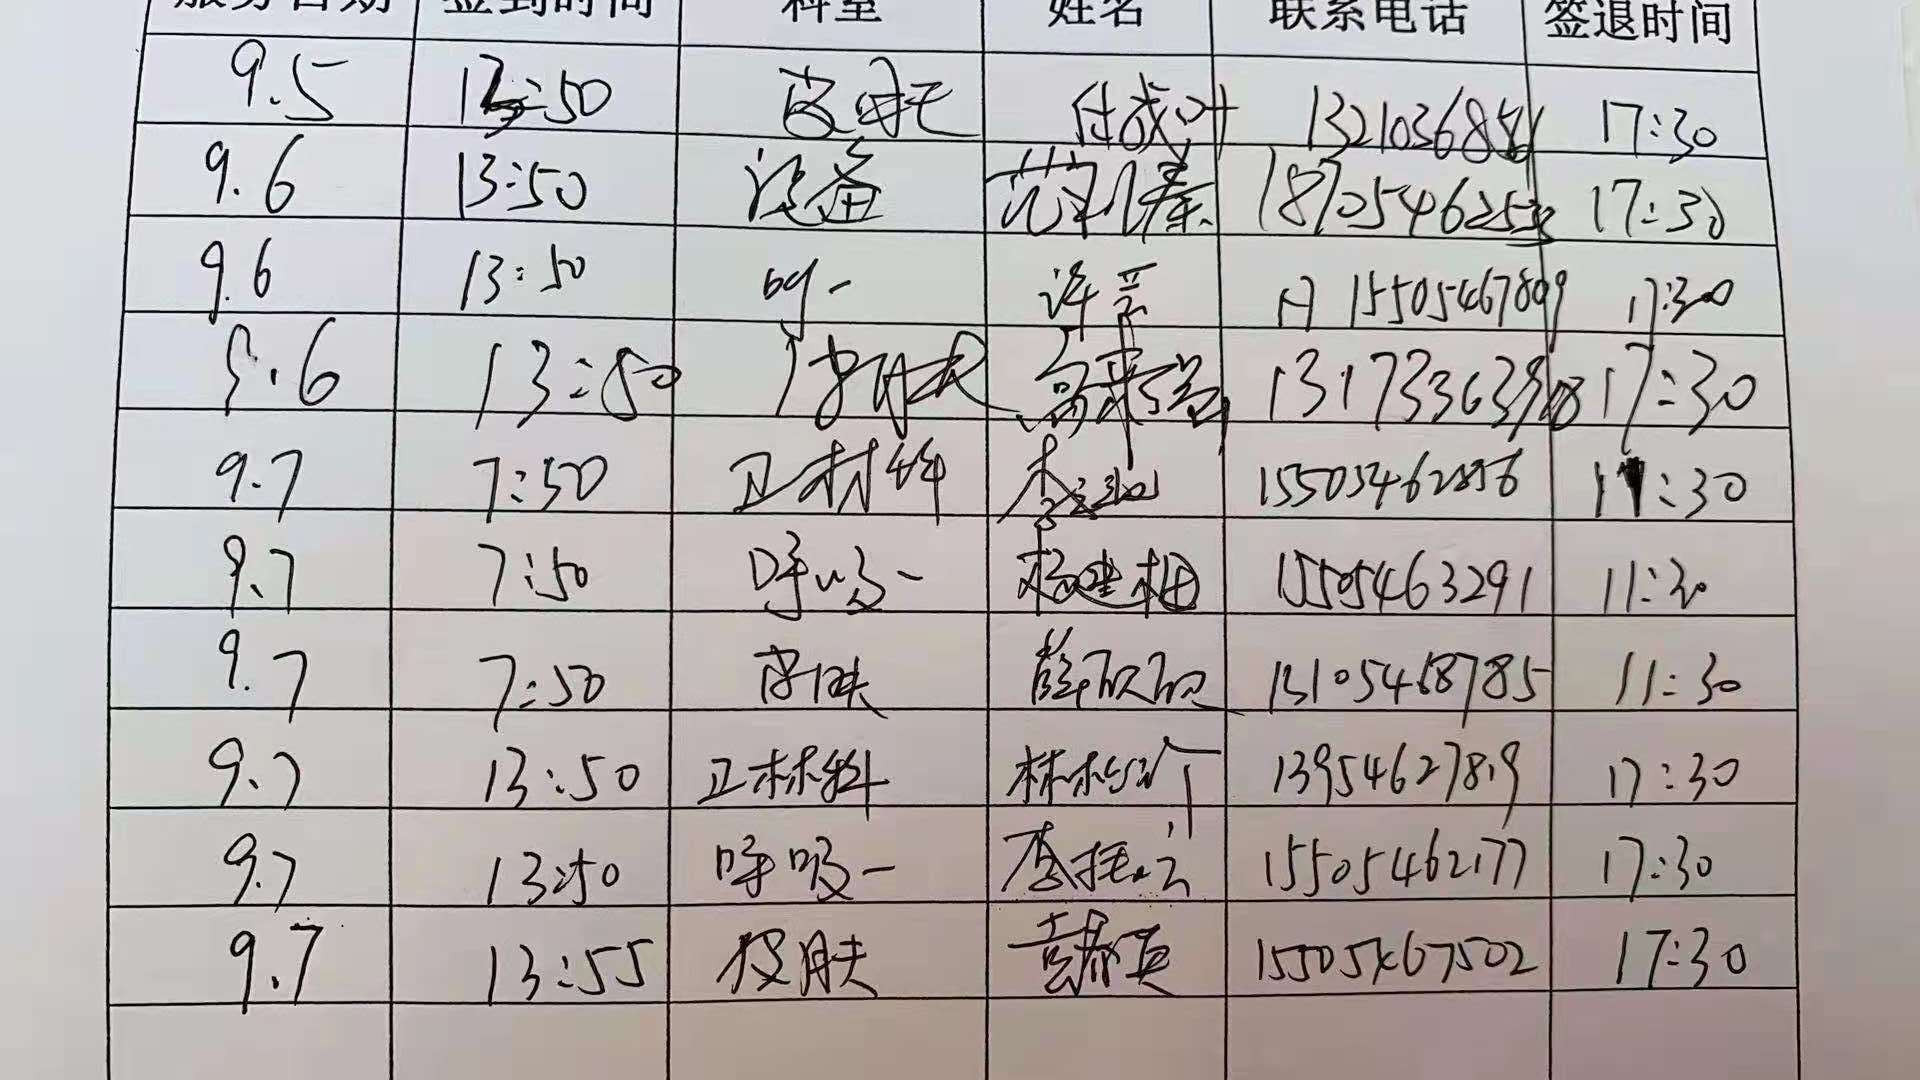 服务日期 签到时间 科室 姓名 联系电话 签退时间
9.5 13:50 17:30
9.6 13:50 设备 18705462533 17:30
9.6 13:50 呼一 许芸 15505467809 17:30
9.6 13:50 皮肤 13173363918 17:30
9.7 7:50 卫材料 15505462856 11:30
9.7 7:50 呼吸一 杨建相 15505463291 11:30
9.7 7:50 皮肤 薛欣欣 13105468785 11:30
9.7 13:50 卫材料 13954627819 17:30
9.7 13:50 呼吸一 15505462177 17:30
9.7 13:55 皮肤 15505467502 17:30